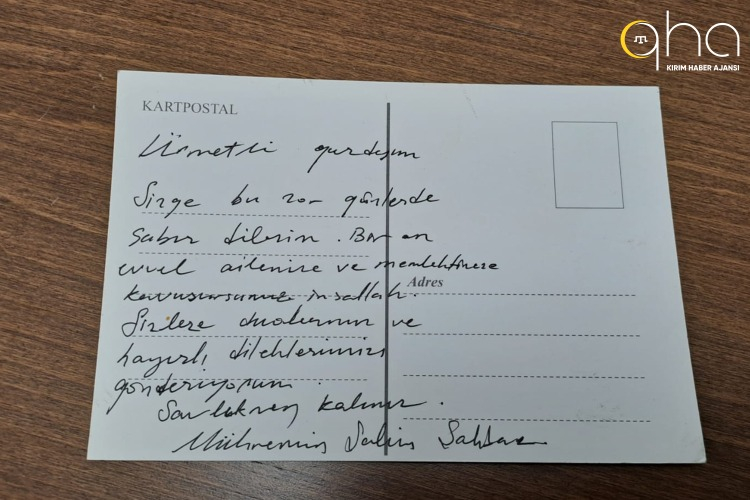 qha
KIRIM HABER AJANSI
KARTPOSTAL
Ürmetli qardaşım
Sizge bu zor günlerde
sabır dilerim. Bir an
evvel ailenize ve memlektinize
kavuşursunuz inşallah.
Adres
Sizlere dualarımızı ve
hayırlı dileklerimizi
gönderiyorum
Savlıknen kalınız.